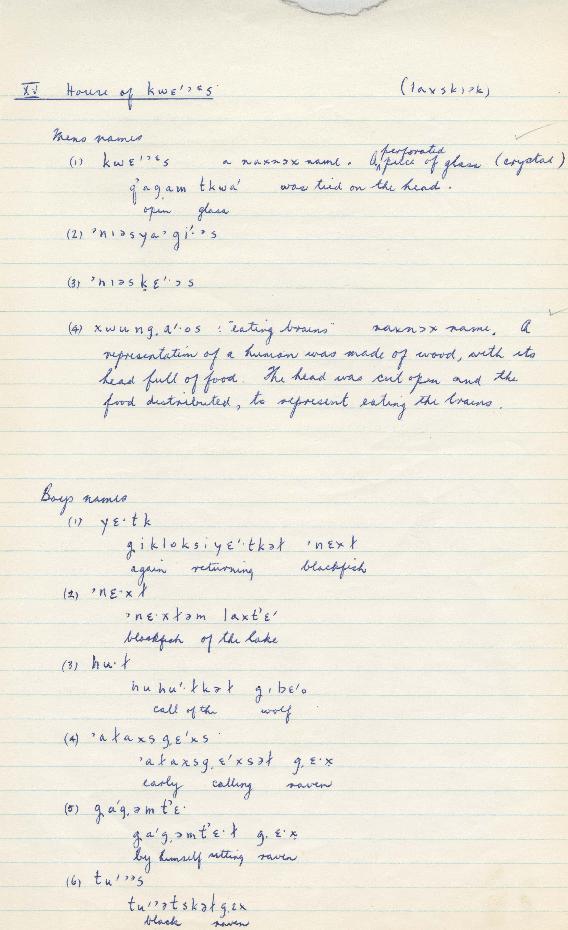 XV House of kwɛ'ᵓᵋs (laxskiək)
Mens names
(1) kwɛ'ᵓᵋs a naxnɔx name. A perforated piece of glass (crystal)
q'agam tkwa' was tied on the head.
open glass
(2) 'niəsya'gi'·ᵓs
(3) 'niəskɛ'·ɔs
(4) xwung,a'·os : "eating brains" naxnɔx name. A
representation of a human was made of wood, with its
head full of food. The head was cut open and the
food distributed, to represent eating the brains.
Boys names
(1) yɛ·tk
gikloksiyɛ'·tkəł 'nɛxł
again returning blackfish
(2) 'nɛ·xł
'nɛ·xłəm laxt'ɛ'
blackfish of the lake
(3) hu·ł
huhu'·łkəł g,ibɛ'o
call of the wolf
(4) 'ałaxsg,ɛ'xs
'ałaxsg,ɛ'xsəł g,ɛ·x
early calling raven
(5) ga'g,əmt'ɛ·
ga'g,əmt'ɛ·ł g,ɛ·x
by himself sitting raven
(6) tu'ᵓᵓs
tu'ᵓətskəłg,ɛx
black raven